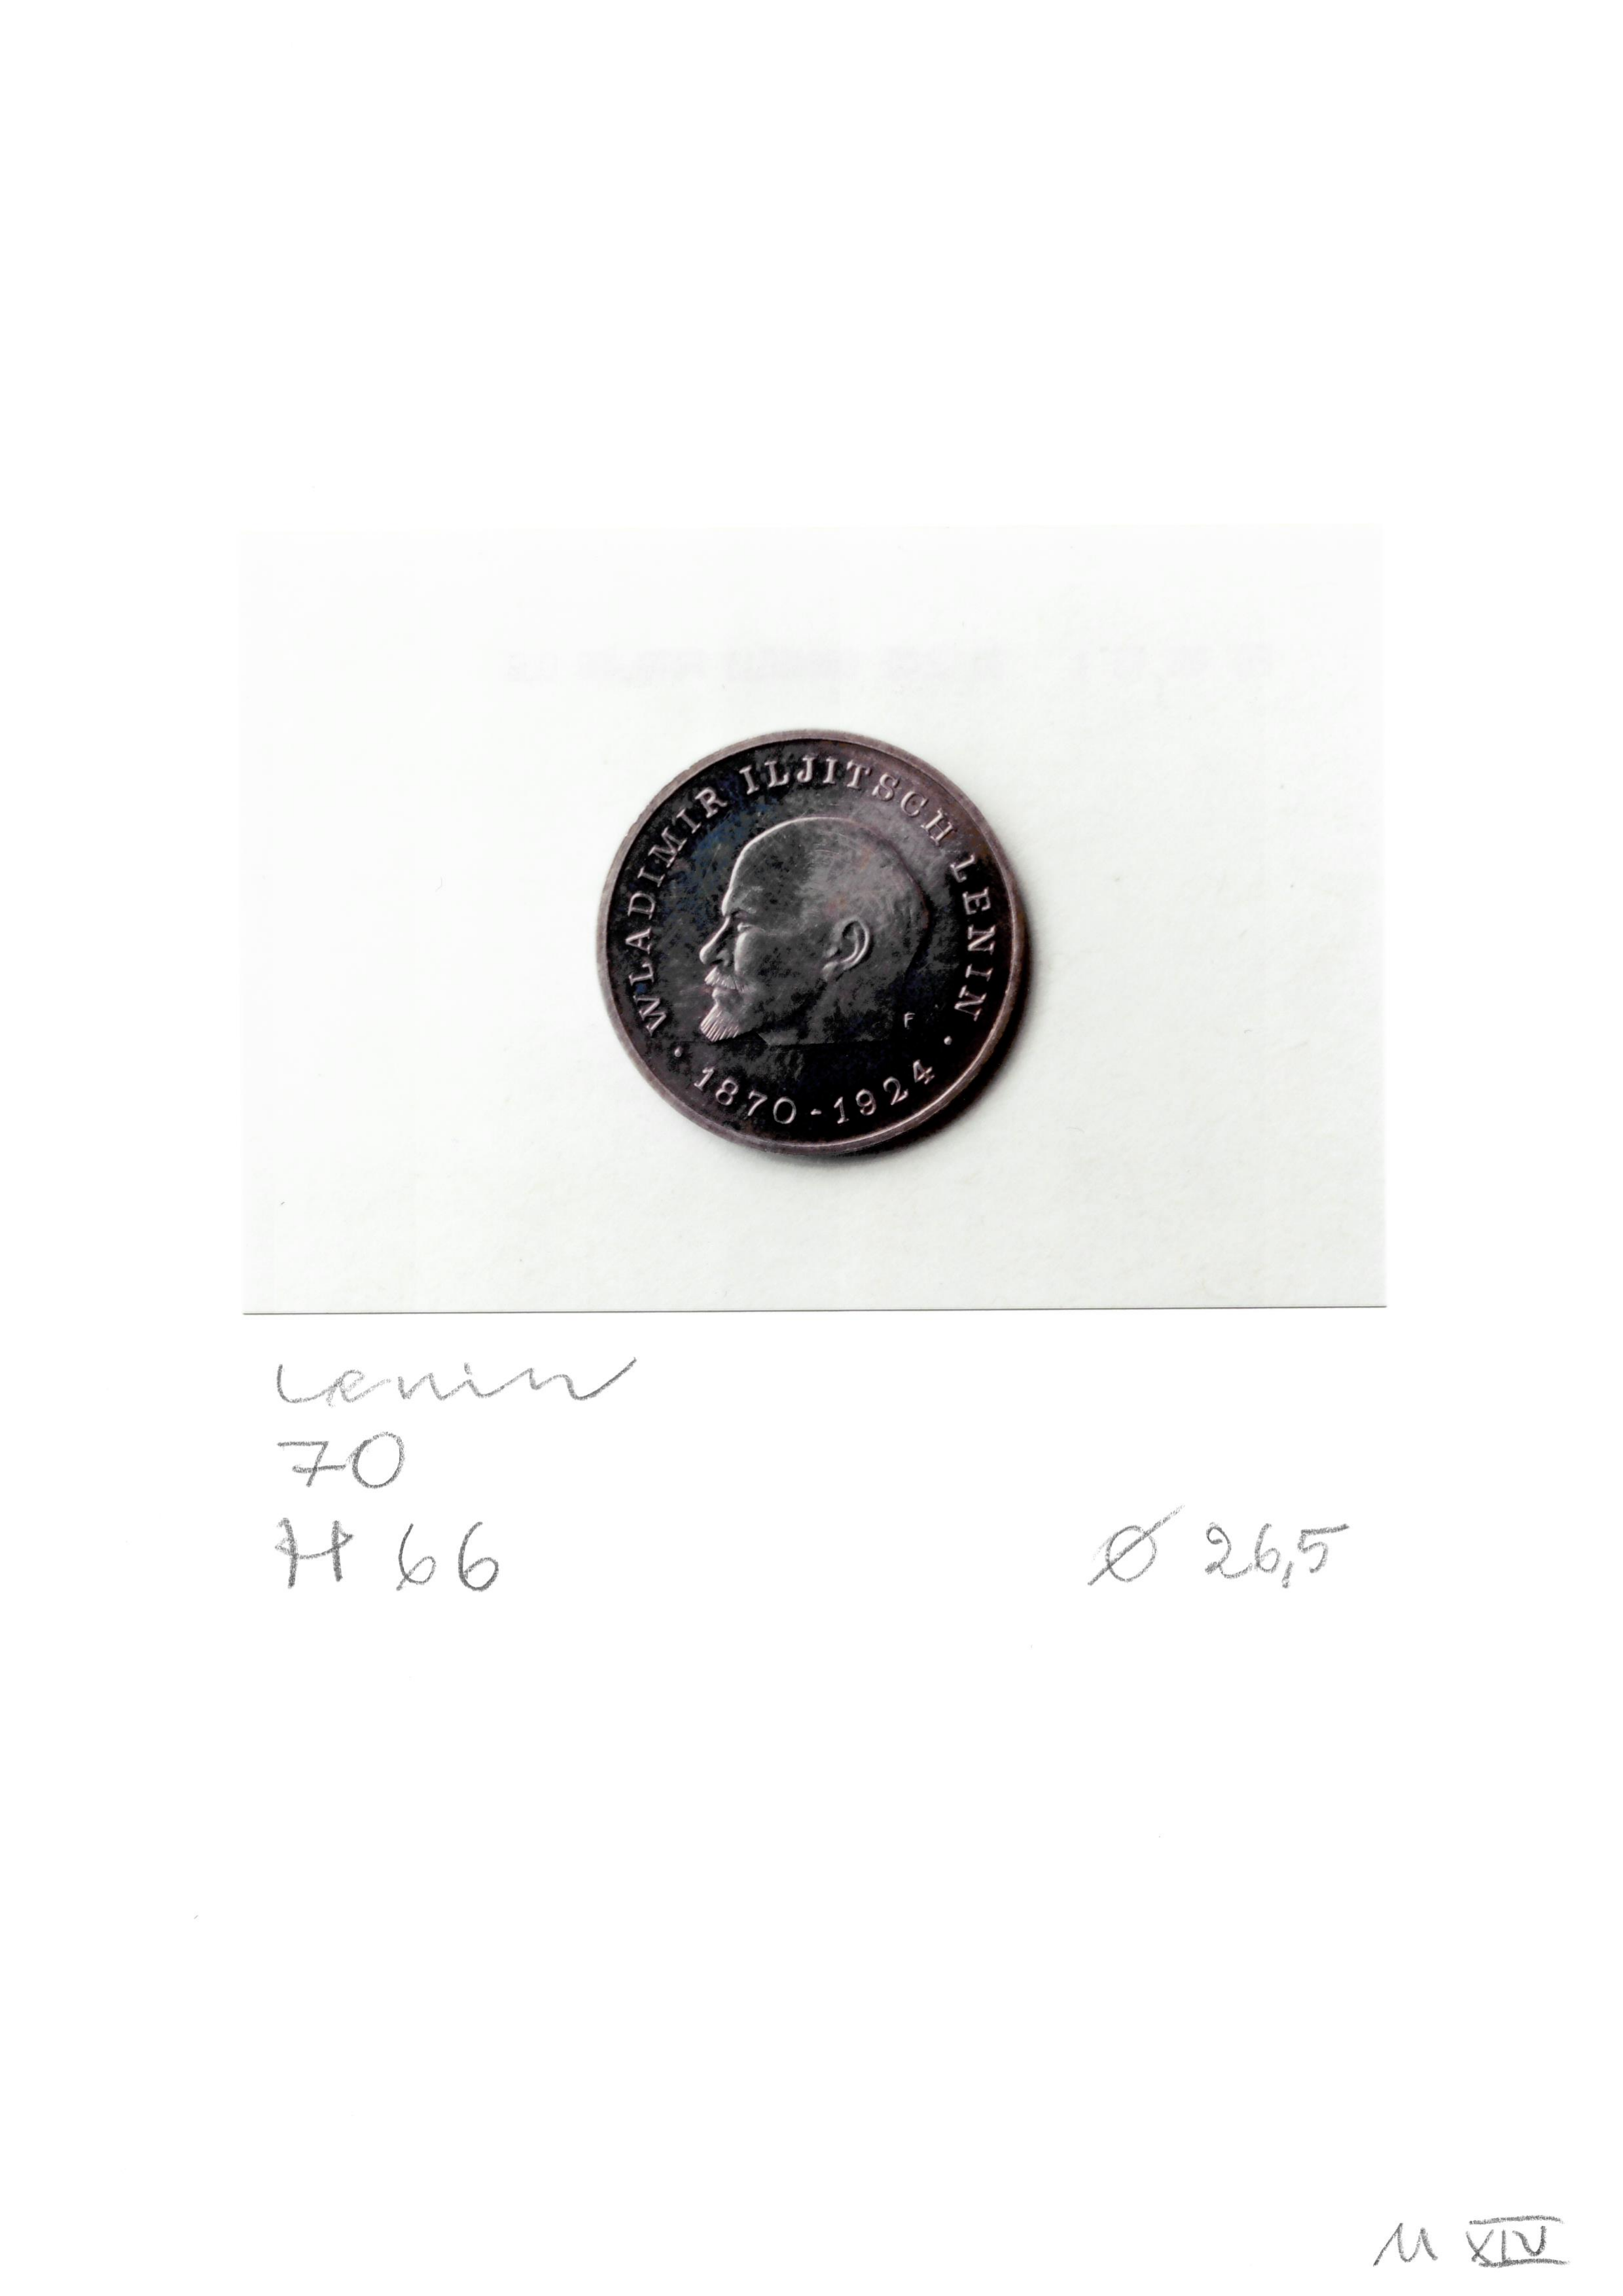 · WLADIMIR ILJITSCH LENIN ·
F
1870-1924
Lenin
70
H 66
Ø 26,5
M XIV